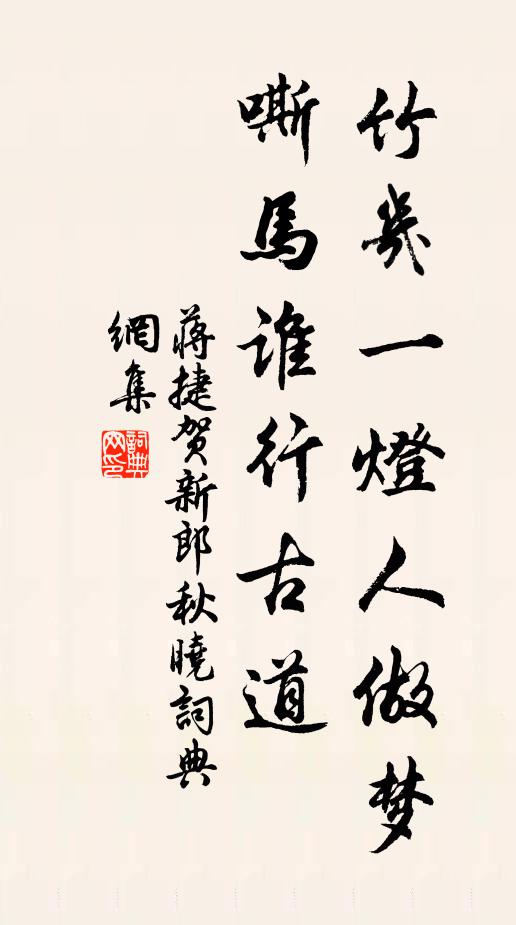 竹幾一燈人做梦
嘶馬誰行古道
蒋捷贺新郎秋曉詞典
網集
詞典
网印